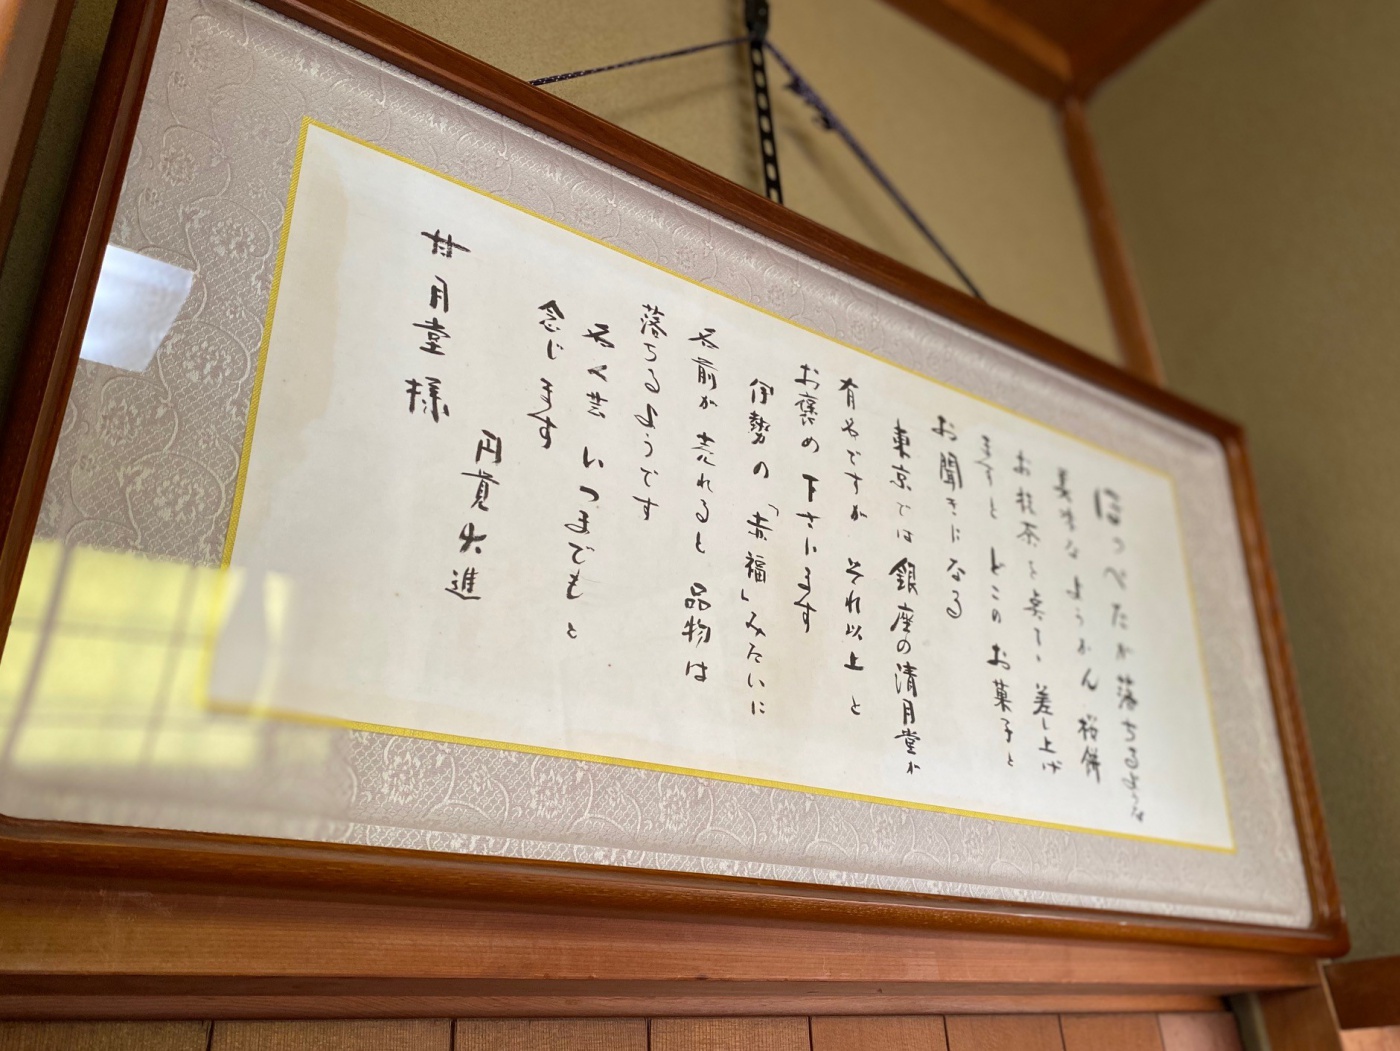 ほっぺたが落ちるような
美味な ようかん 桜餅
お抹茶を点てゝ 差し上げ
ますと どこのお菓子と
お聞きになる
東京では銀座の清月堂が
有名ですが それ以上と
お褒め下さいます
伊勢の「赤福」みたいに
名前が売れると 品物は
落ちるようです
いつまでもと
念じます
円覚大進
廿月堂様